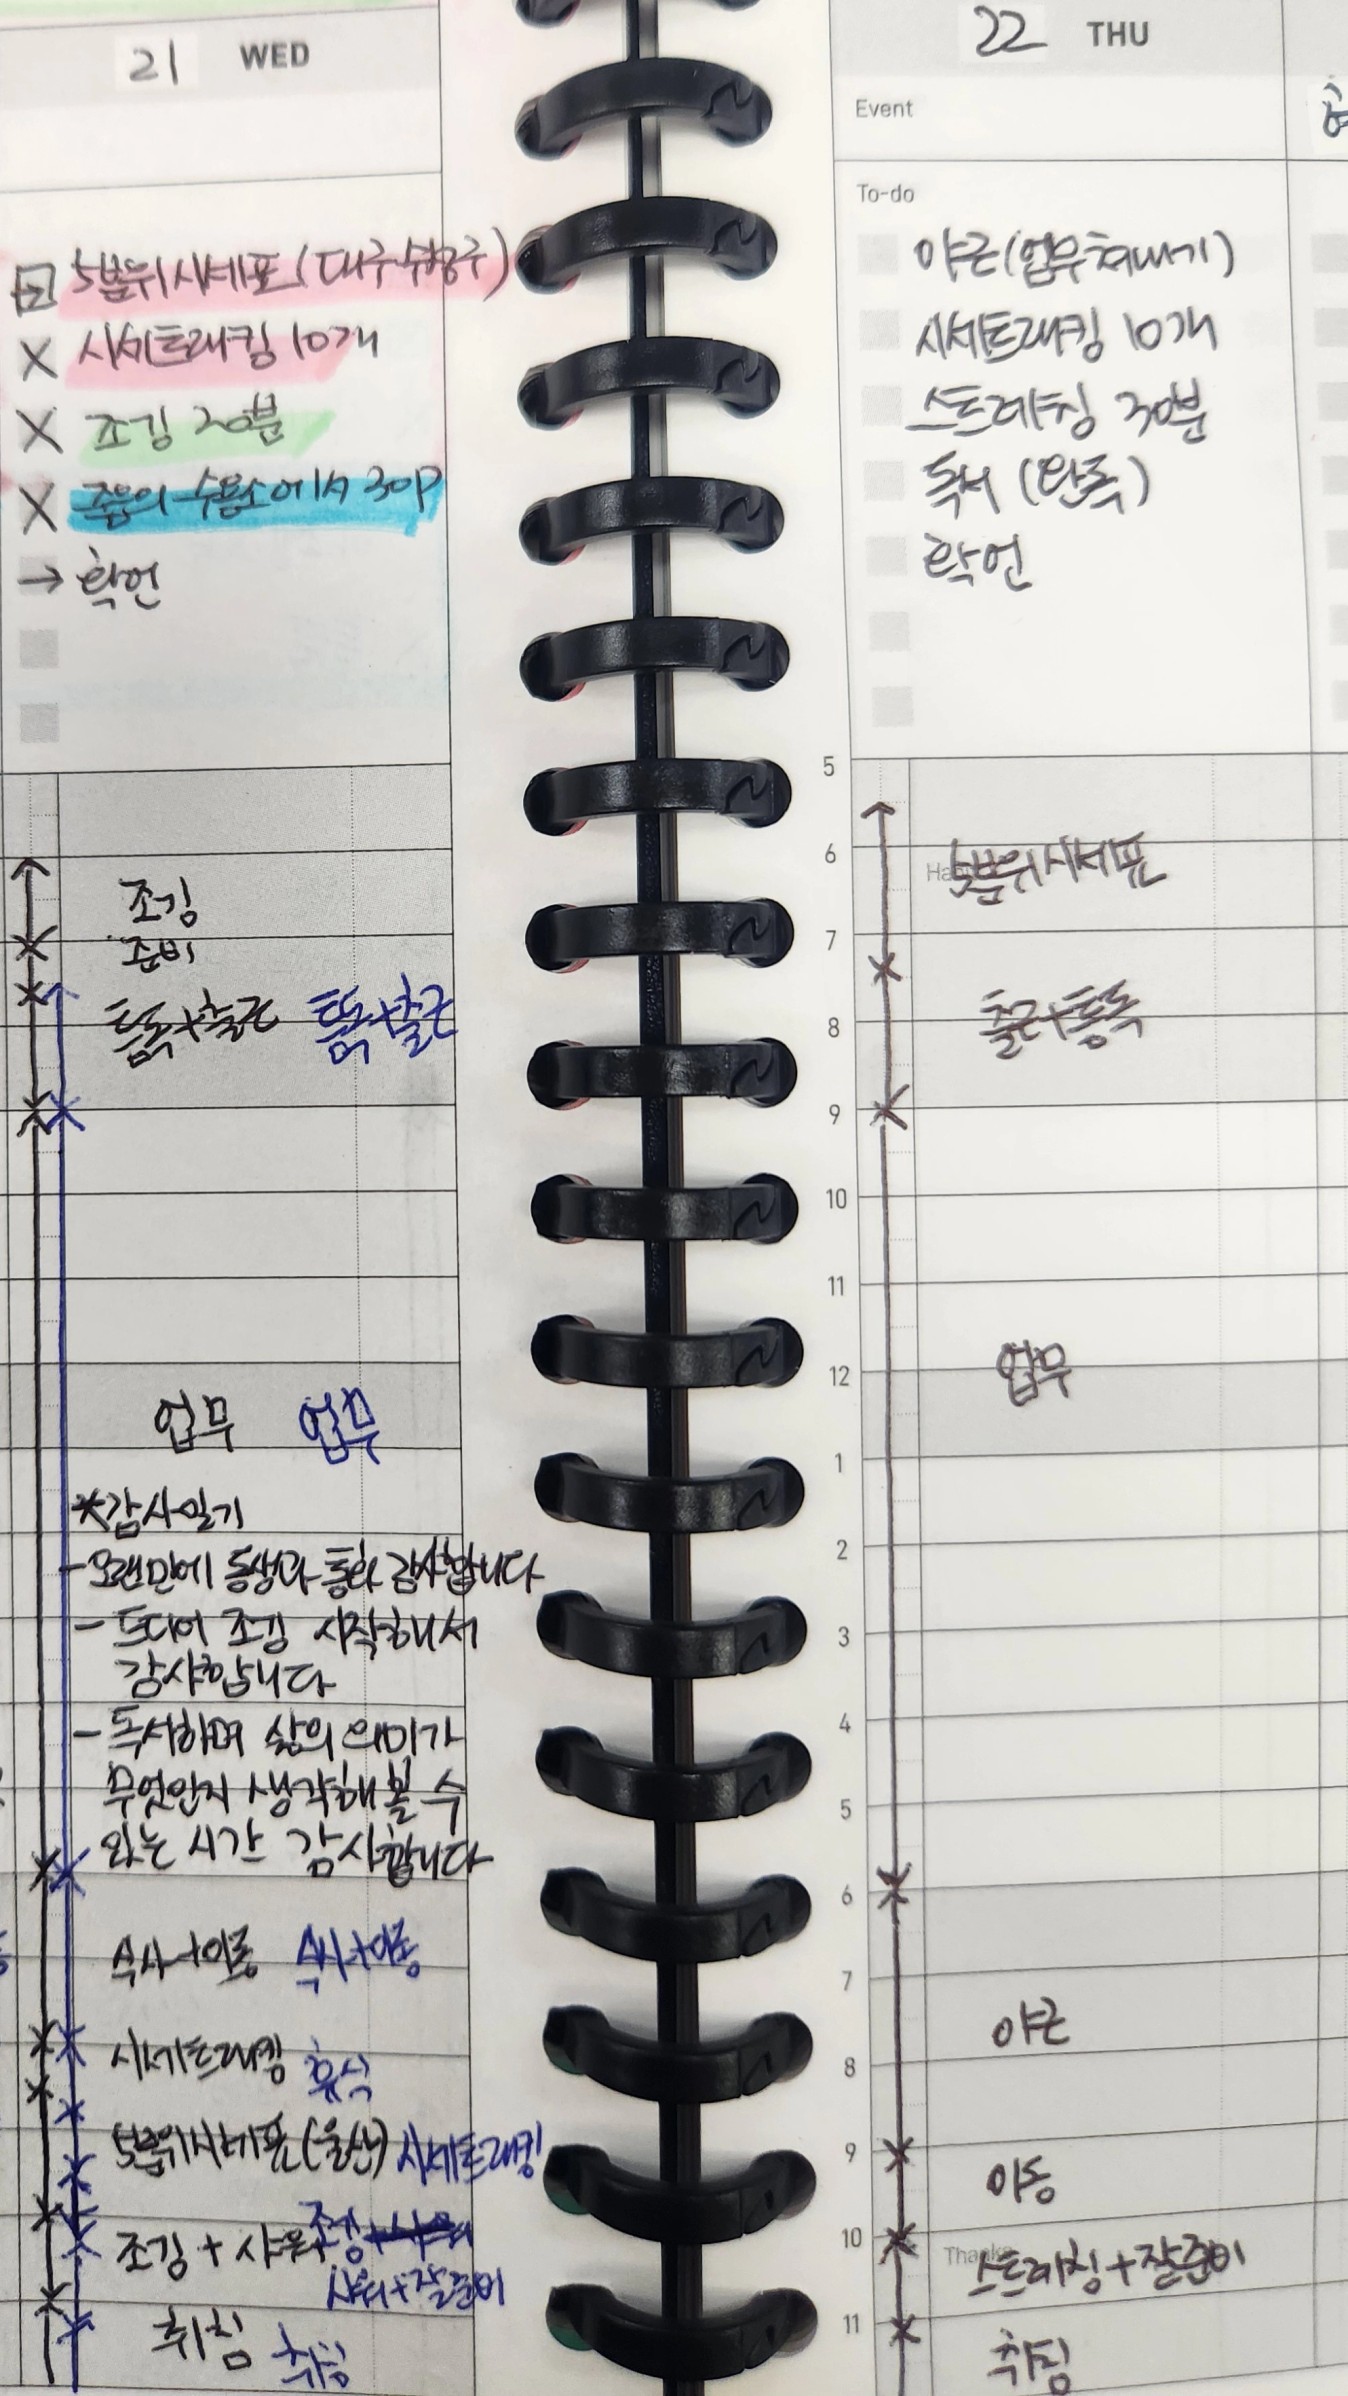 21 WED
5분위 시세표 (대구 수성구)
시세트래킹 10개
조깅 20분
죽음의 수용소에서 30P
→ 확언
조깅
준비
틈독+출근 틈독+출근
업무 업무
*감사일기
- 오랜만에 동생과 통화 감사합니다
- 드디어 조깅 시작해서
감사합니다
- 독서하며 삶의 의미가
무엇인지 생각해 볼 수
있는 시간 감사합니다
식사+이동 식사+이동
시세트래킹 휴식
5분위시세표(울산) 시세트래킹
조깅 + 샤워 조깅
샤워+잘준비
취침 취침
22 THU
Event
To-do
야근(업무쳐내기)
시세트래킹 10개
스트레칭 30분
독서 (완독)
확언
5
6
5분위시세표
7
8
출근+틈독
9
10
11
12
업무
1
2
3
4
5
6
7
야근
8
9
이동
10
Thanks
스트레칭+잘준비
11
취침